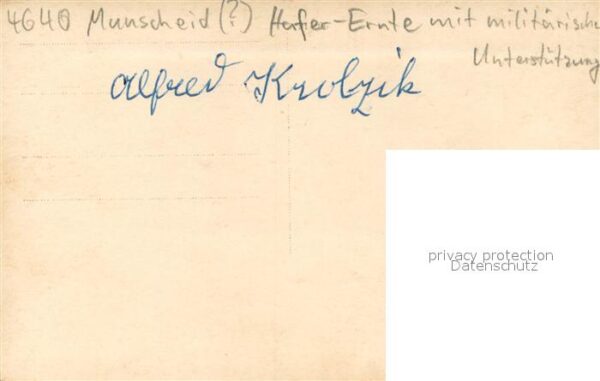 4640 Munscheid (?) Hafer-Ernte mit militärische
Unterstützung
Alfred Krolzik
privacy protection
Datenschutz